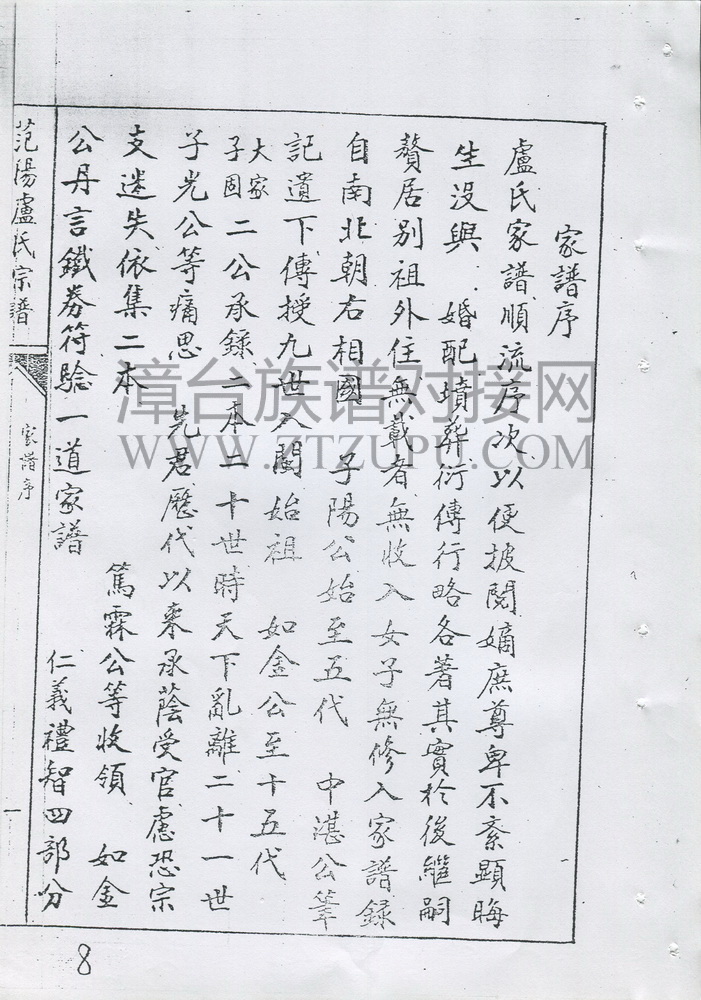 家譜序
盧氏家譜順流序次以便披閱嫡庶尊卑不紊顯晦
生没與 婚配墳葬衍傳行略各著其實於後繼嗣
贅居别祖外住無載者無收入女子無修入家譜録
自南北朝右相國 子陽公始至五代 中湛公筆
記遺下傳授九世入閩始祖 如金公至十五代
大家
子固 二公承録二本二十世時天下亂離二十一世
子光公等痛思 先君歷代以來承蔭受官慮恐宗
支迷失依集二本 篤霖公等收領 如金
公丹言鐵券符驗一道家譜 仁義禮智四部分
范陽盧氏宗譜
家譜序
一
8
漳台族谱对接网
WWW.ZTZUPU.COM